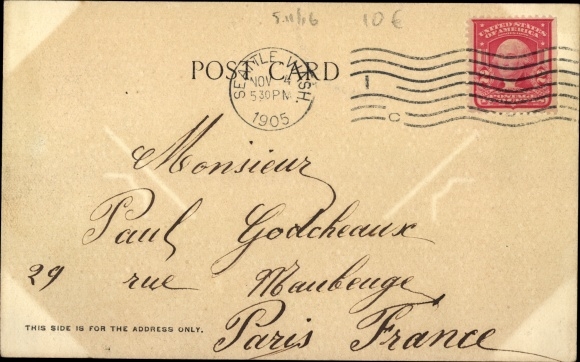 5.11/16 10 €
UNITED STATES
OF AMERICA
POST CARD
SEATTLE, WASH.
NOV 4
5 30 PM
1905
C
Monsieur
Paul Godcheaux
29 rue Maubeuge
THIS SIDE IS FOR THE ADDRESS ONLY.
Paris France